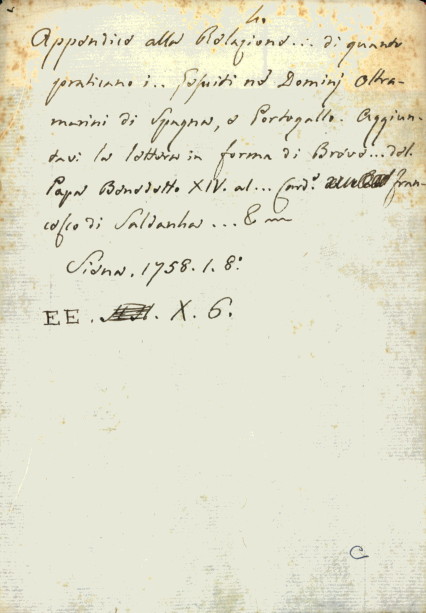 4.
Appendice alla Relazione... di quanto
praticano i.. Gesuiti ne' Dominj Oltra-
marini di Spagna, e Portogallo. Aggiun-
tavi la lettera in forma di Breve... del
Papa Benedetto XIV. al... Card.e Fran-
cesco di Saldanha ... &
Siena, 1758. I. 8.°
EE. X. 6.
C